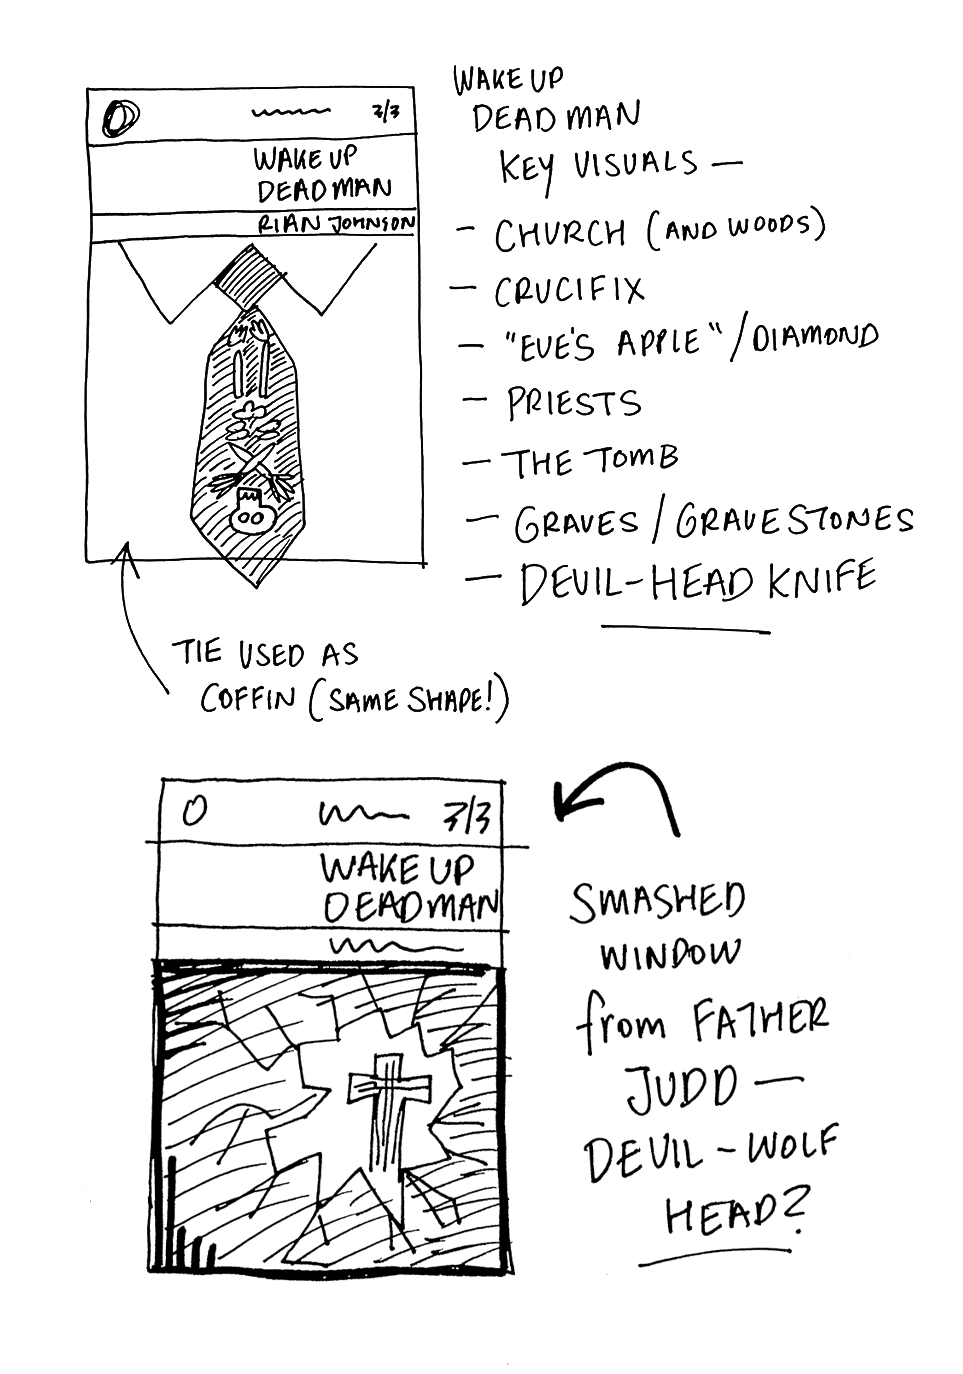 3/3
WAKE UP
DEAD MAN
RIAN JOHNSON
WAKE UP
DEAD MAN
KEY VISUALS —
— CHURCH (AND WOODS)
— CRUCIFIX
— "EVE'S APPLE"/DIAMOND
— PRIESTS
— THE TOMB
— GRAVES/GRAVESTONES
— DEVIL-HEAD KNIFE
TIE USED AS
COFFIN (SAME SHAPE!)
3/3
WAKE UP
DEAD MAN
SMASHED
WINDOW
from FATHER
JUDD —
DEVIL-WOLF
HEAD?